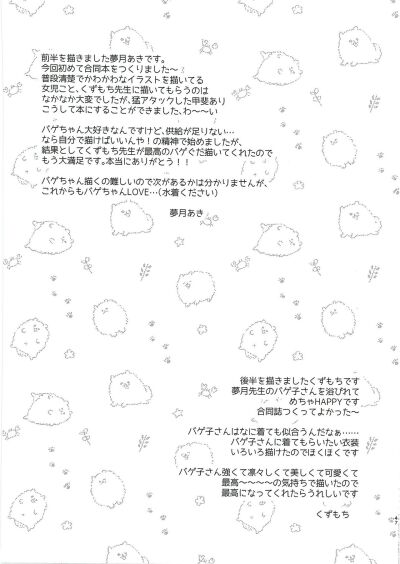 前半を描きました夢月あきです。
今回初めて合同本をつくりました〜
普段清楚でかわかわなイラストを描いてる
女児こと、くずもち先生に描いてもらうのは
なかなか大変でしたが、猛アタックした甲斐あり
こうして本にすることができました、わ〜〜い
バゲちゃん大好きなんですけど、供給が足りない…
なら自分で描けばいいんや!の精神で始めましたが、
結果としてくずもち先生が最高のバゲぐだ描いてくれたので
もう大満足です。本当にありがとう!!
バゲちゃん描くの難しいので次があるかは分かりませんが、
これからもバゲちゃんLOVE…(水着ください)
夢月あき
後半を描きましたくずもちです
夢月先生のバゲ子さんを浴びれて
めちゃHAPPYです
合同誌つくってよかった〜
バゲ子さんはなに着ても似合うんだなぁ……
バゲ子さんに着てもらいたい衣装
いろいろ描けたのでほくほくです
バゲ子さん強くて凛々しくて美しくて可愛くて
最高〜〜〜〜の気持ちで描いたので
最高になってくれたらうれしいです
くずもち